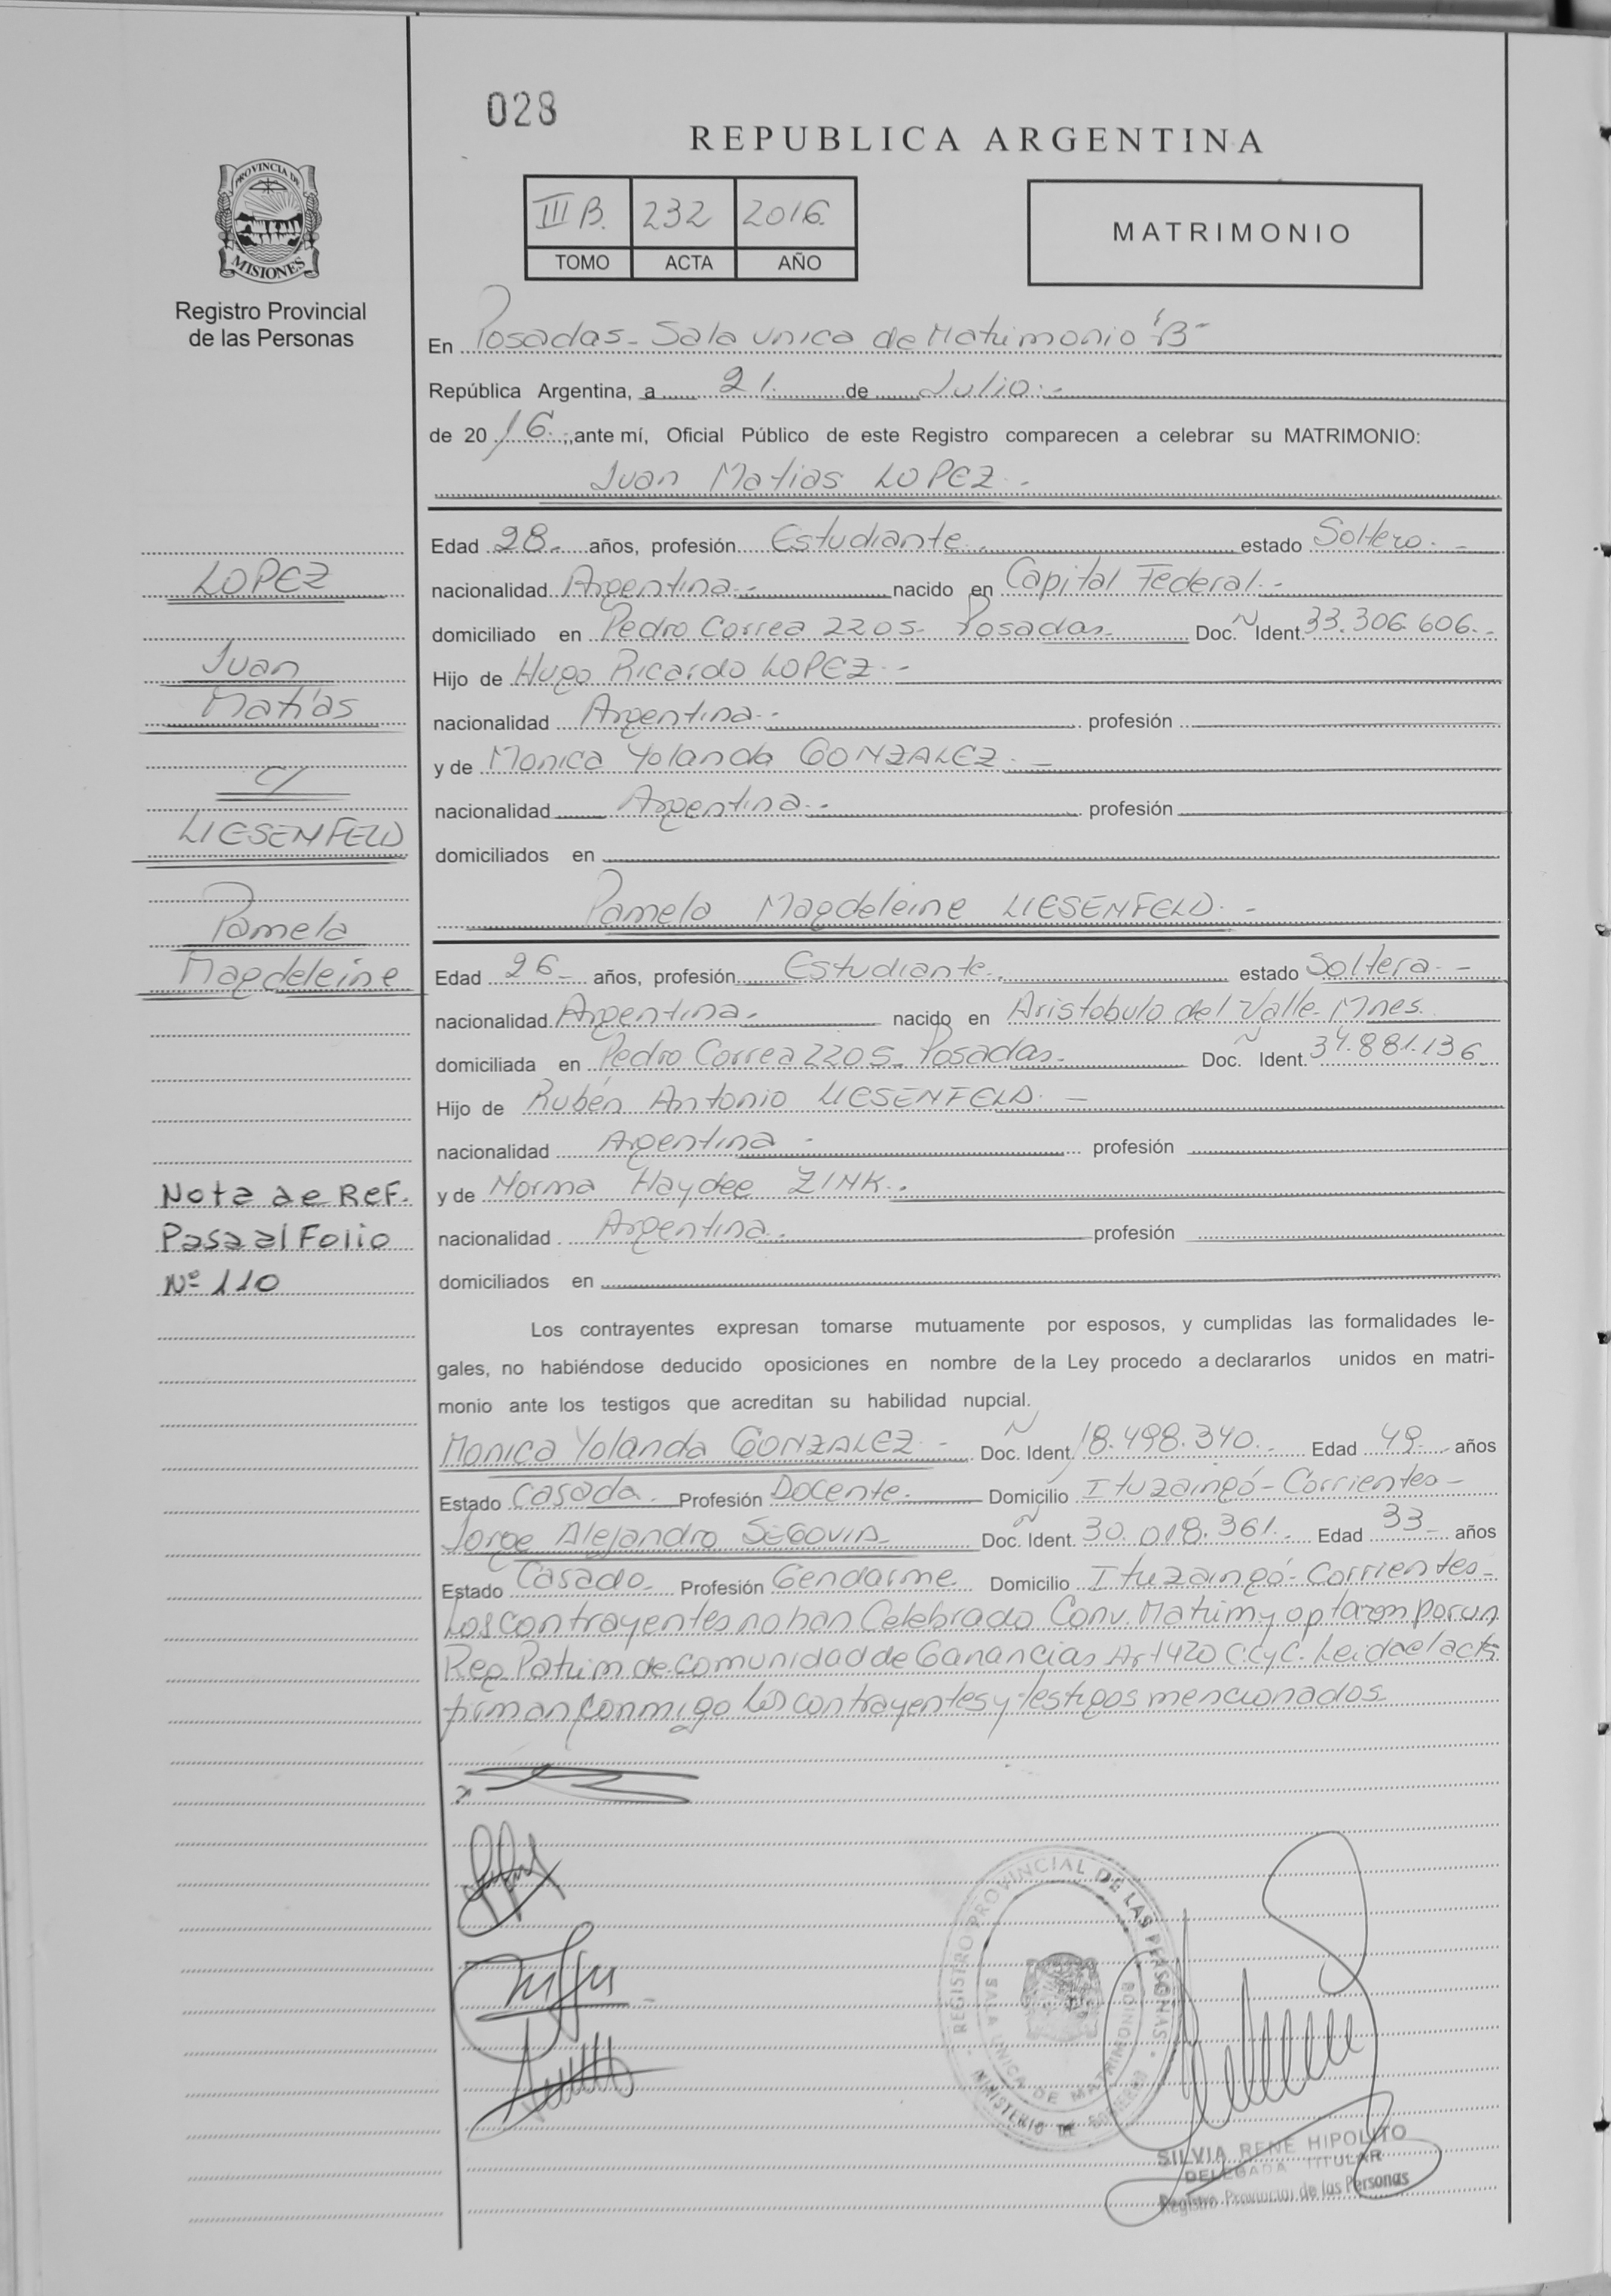 028
REPUBLICA ARGENTINA
PROVINCIA DE
MISIONES
Registro Provincial
de las Personas
III B. 232 2016.
TOMO ACTA AÑO
MATRIMONIO
En Posadas - Sala unica de Matrimonio "B"
República Argentina, a 21. de Julio.-
de 2016.-, ante mí, Oficial Público de este Registro comparecen a celebrar su MATRIMONIO:
Juan Matias LOPEZ.-
Edad 28.- años, profesión Estudiante.- estado Soltero.-
nacionalidad Argentina.- nacido en Capital Federal.-
domiciliado en Pedro Correa 2205- Posadas- Doc. Ident. 33.306.606.-
Hijo de Hugo Ricardo LOPEZ.-
nacionalidad Argentina.- profesión
y de Monica Yolanda GONZALEZ.-
nacionalidad Argentina.- profesión
domiciliados en
Pamela Magdeleine LIESENFELD.-
Edad 26- años, profesión Estudiante.- estado Soltera.-
nacionalidad Argentina.- nacido en Aristobulo del Valle- Mnes.
domiciliada en Pedro Correa 2205- Posadas- Doc. Ident. 34.881.136
Hijo de Rubén Antonio LIESENFELD.-
nacionalidad Argentina.- profesión
y de Norma Haydee ZINK.-
nacionalidad Argentina.- profesión
domiciliados en
LOPEZ
Juan
Matías
c/
LIESENFELD
Pamela
Magdeleine
Nota de Ref.
Pasa al Folio
Nº 110
Los contrayentes expresan tomarse mutuamente por esposos, y cumplidas las formalidades le-
gales, no habiéndose deducido oposiciones en nombre de la Ley procedo a declararlos unidos en matri-
monio ante los testigos que acreditan su habilidad nupcial.
Monica Yolanda GONZALEZ.- Doc. Ident. 18.498.340.- Edad 49- años
Estado Casada.- Profesión Docente.- Domicilio Ituzaingó - Corrientes -
Jorge Alejandro SEGOVIA- Doc. Ident. 30.018.361.- Edad 33- años
Estado Casado- Profesión Gendarme Domicilio Ituzaingó - Corrientes -
Los contrayentes no han Celebrado Conv. Matrim y optaron por un
Reg. Patrim de comunidad de Ganancias Art 420 CCyC. Leida el acta
firman conmigo los contrayentes y testigos mencionados-
REGISTRO PROVINCIAL DE LAS PERSONAS
SALA UNICA DE MATRIMONIOS
MINISTERIO DE GOBIERNO
SILVIA RENE HIPOLITO
DELEGADA TITULAR
Registro Provincial de las Personas